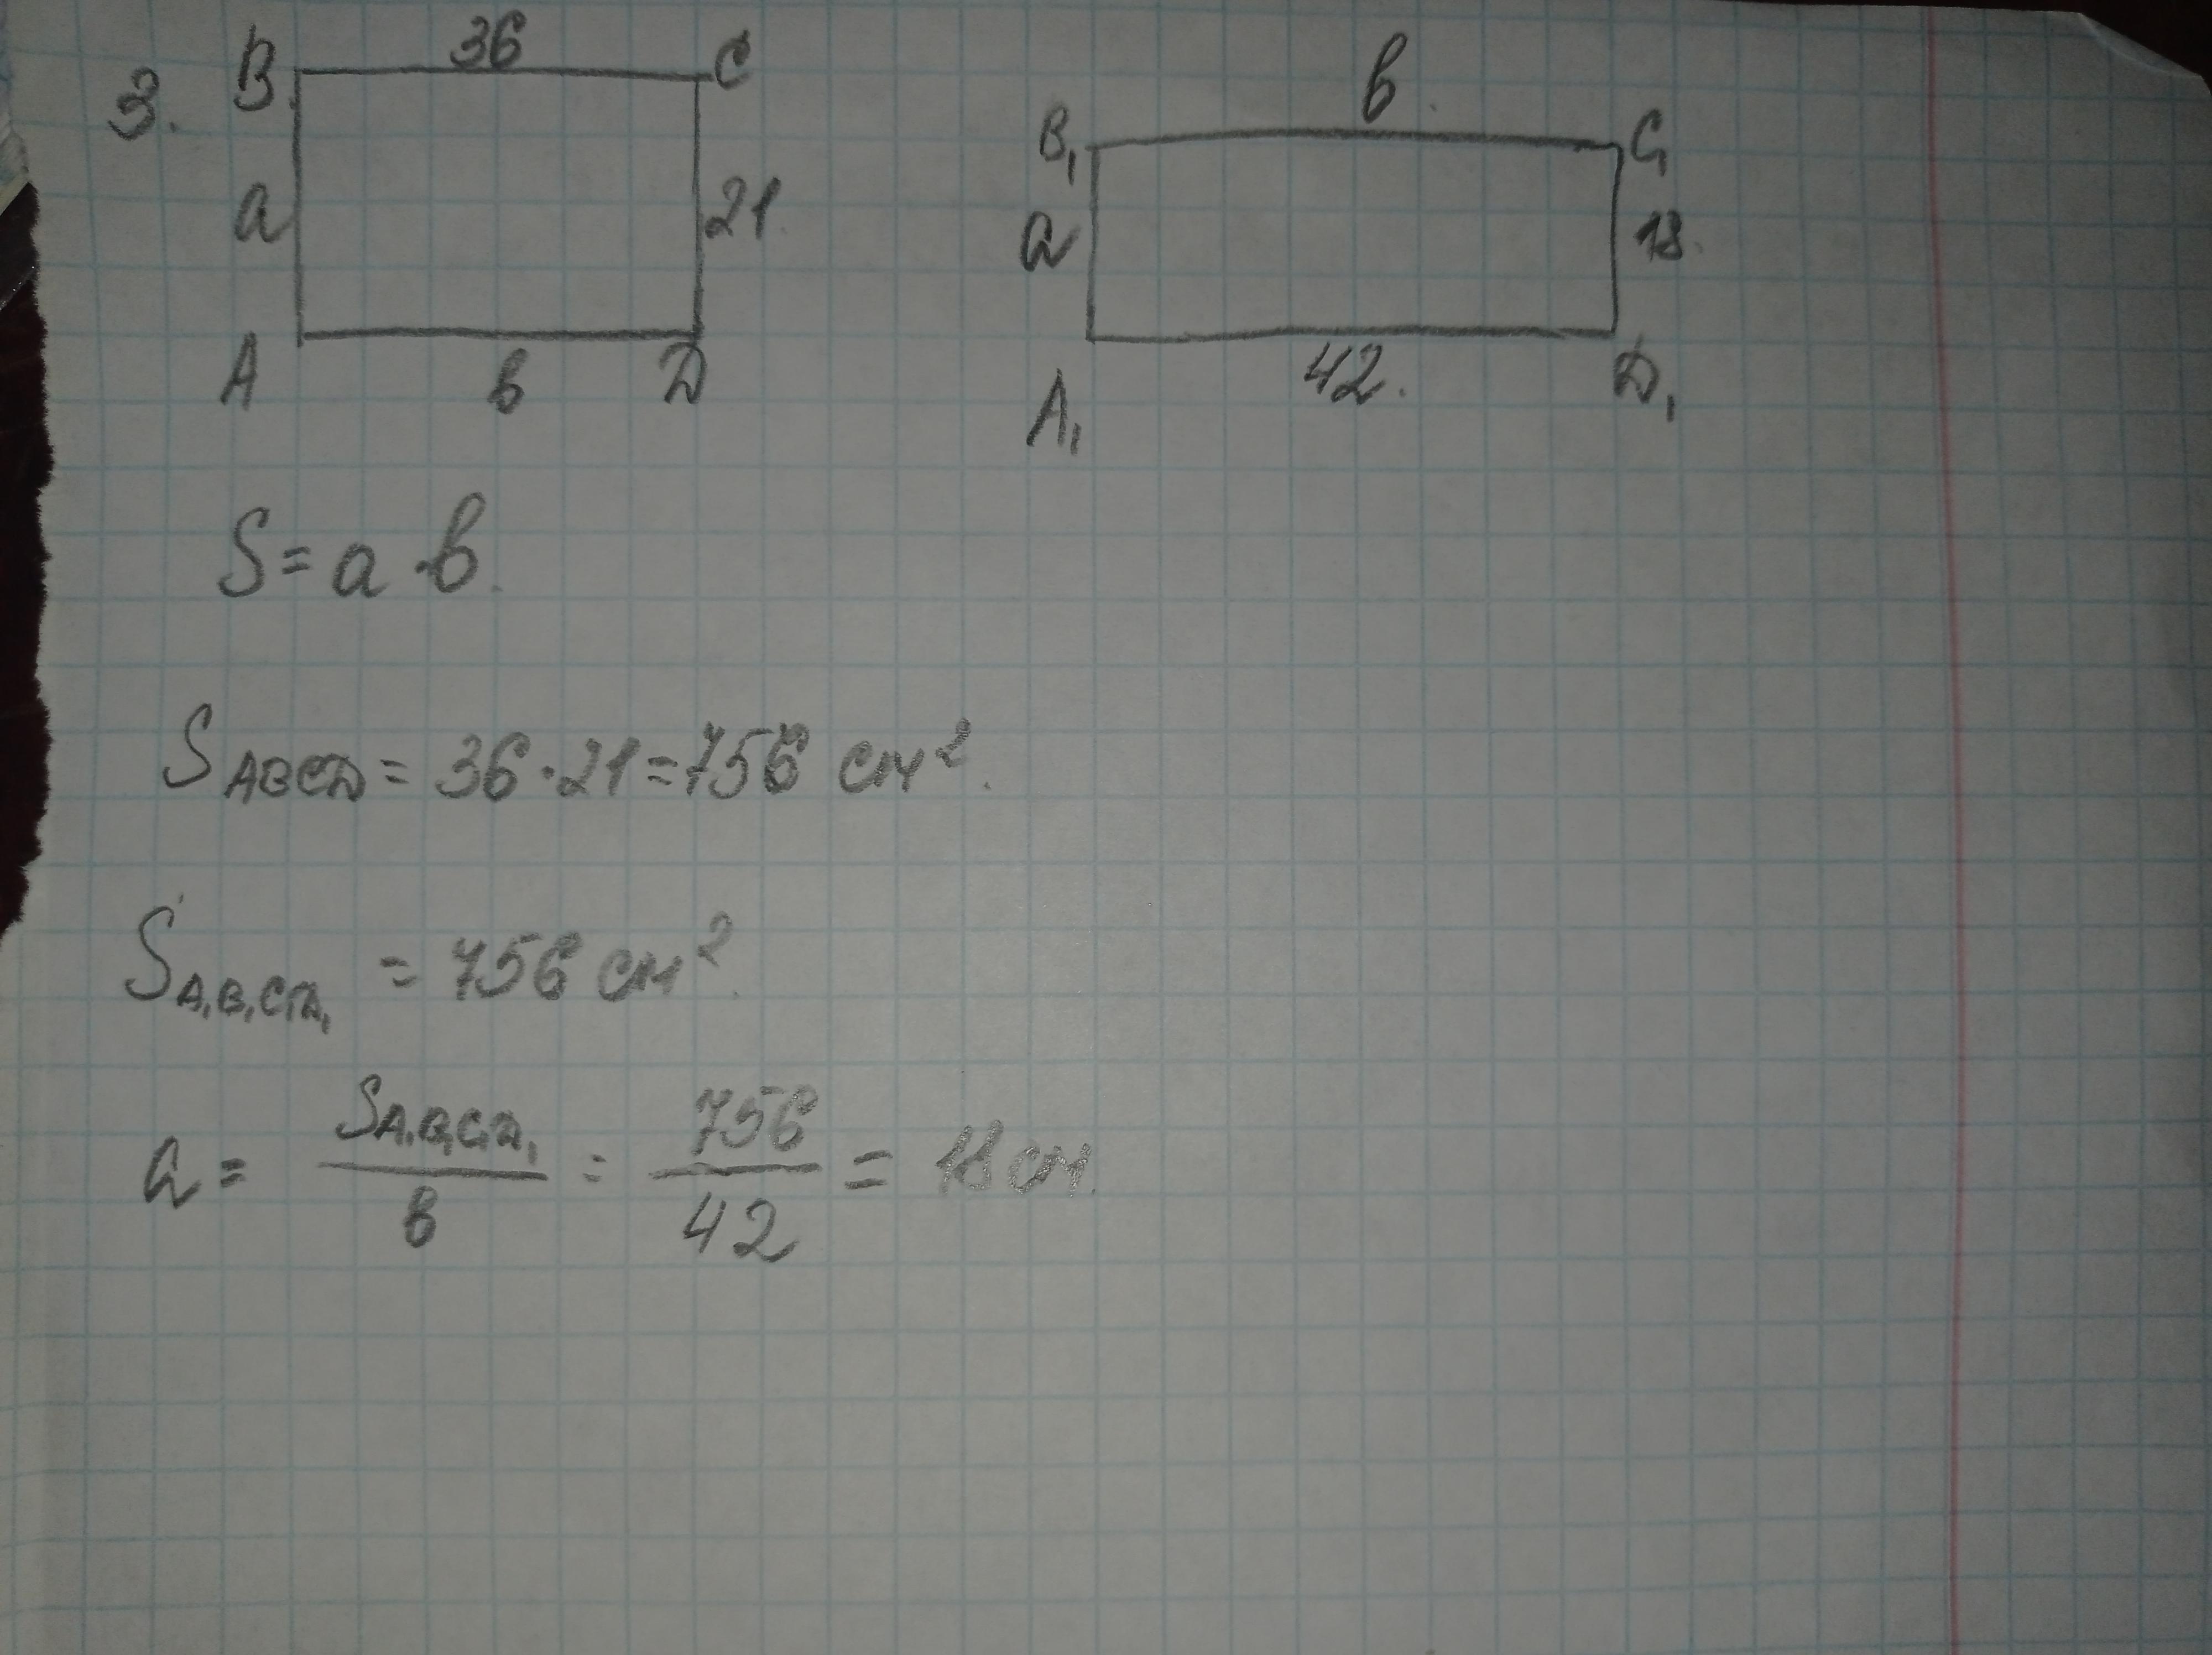 3.
B 36 C
a 21.
A в D
в.
B₁ C₁
a 18.
A₁ 42. D₁
S = a · в.
S ABCD = 36 · 21 = 756 см².
S A₁B₁C₁D₁ = 756 см².
a = S A₁B₁C₁D₁ / в = 756 / 42 = 18 см.